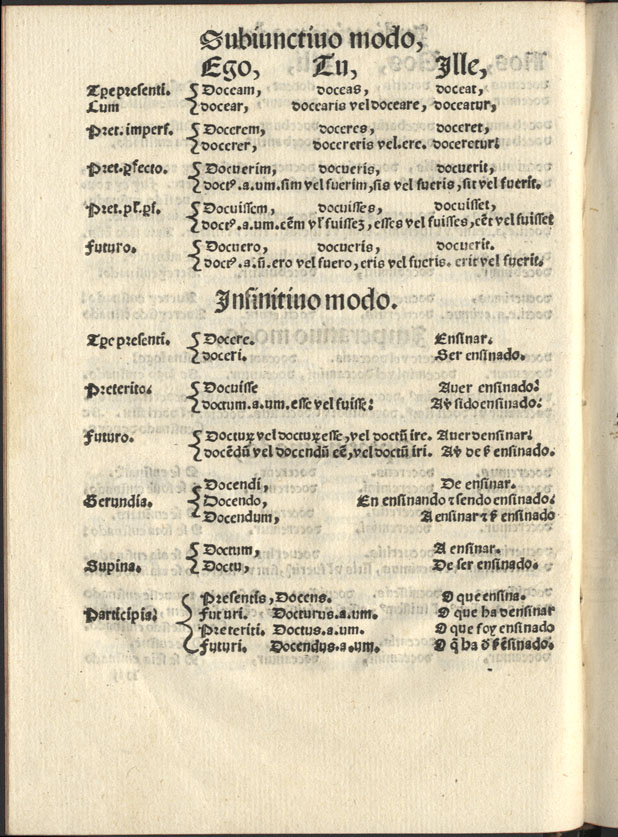 Subiunctiuo modo,
Ego, Tu, Ille,
Tp̄e presenti. Doceam, doceas, doceat,
Cum docear, docearis vel doceare, doceatur,
Pret. imperf. Docerem, doceres, doceret,
docerer, docereris vel.ere. doceretur:
Pret. p̄fecto. Docuerim, docueris, docuerit,
doctꝰ.a.um.sim vel fuerim, sis vel fueris, sit vel fuerit.
Pret. pl̄. p̄f. Docuissem, docuisses, docuisset,
doctꝰ.a.um.eēm vl̓ fuisseȝ, esses vel fuisses, eēt vel fuisset
Futuro. Docuero, docueris, docuerit.
doctꝰ.a.ū.ero vel fuero, eris vel fueris. erit vel fuerit.
Infinitiuo modo.
Tp̄e presenti. Docere. Ensinar.
doceri. Ser ensinado.
Preterito: Docuisse Auer ensinado:
doctum.a.um.esse vel fuisse: Au̓ sido ensinado.
Futuro. Docturꝝ vel docturꝝ esse, vel doctū ire. Auer densinar:
docēdū vel docendū eē, vel doctū iri. Au̓ de s̓ ensinado.
Docendi, De ensinar.
Gerundia. Docendo, En ensinando ⁊ sendo ensinado:
Docendum, A ensinar ⁊ s̓ ensinado
Doctum, A ensinar.
Supina. Doctu, De ser ensinado.
Presentis, Docens. O que ensina.
Participia: Futuri. Docturus.a.um. O que ha densinar
Preteriti. Doctus.a.um. O que foy ensinado
Futuri. Docendus.a.um. O q̄ ha d̓ s̓ ēsinado.